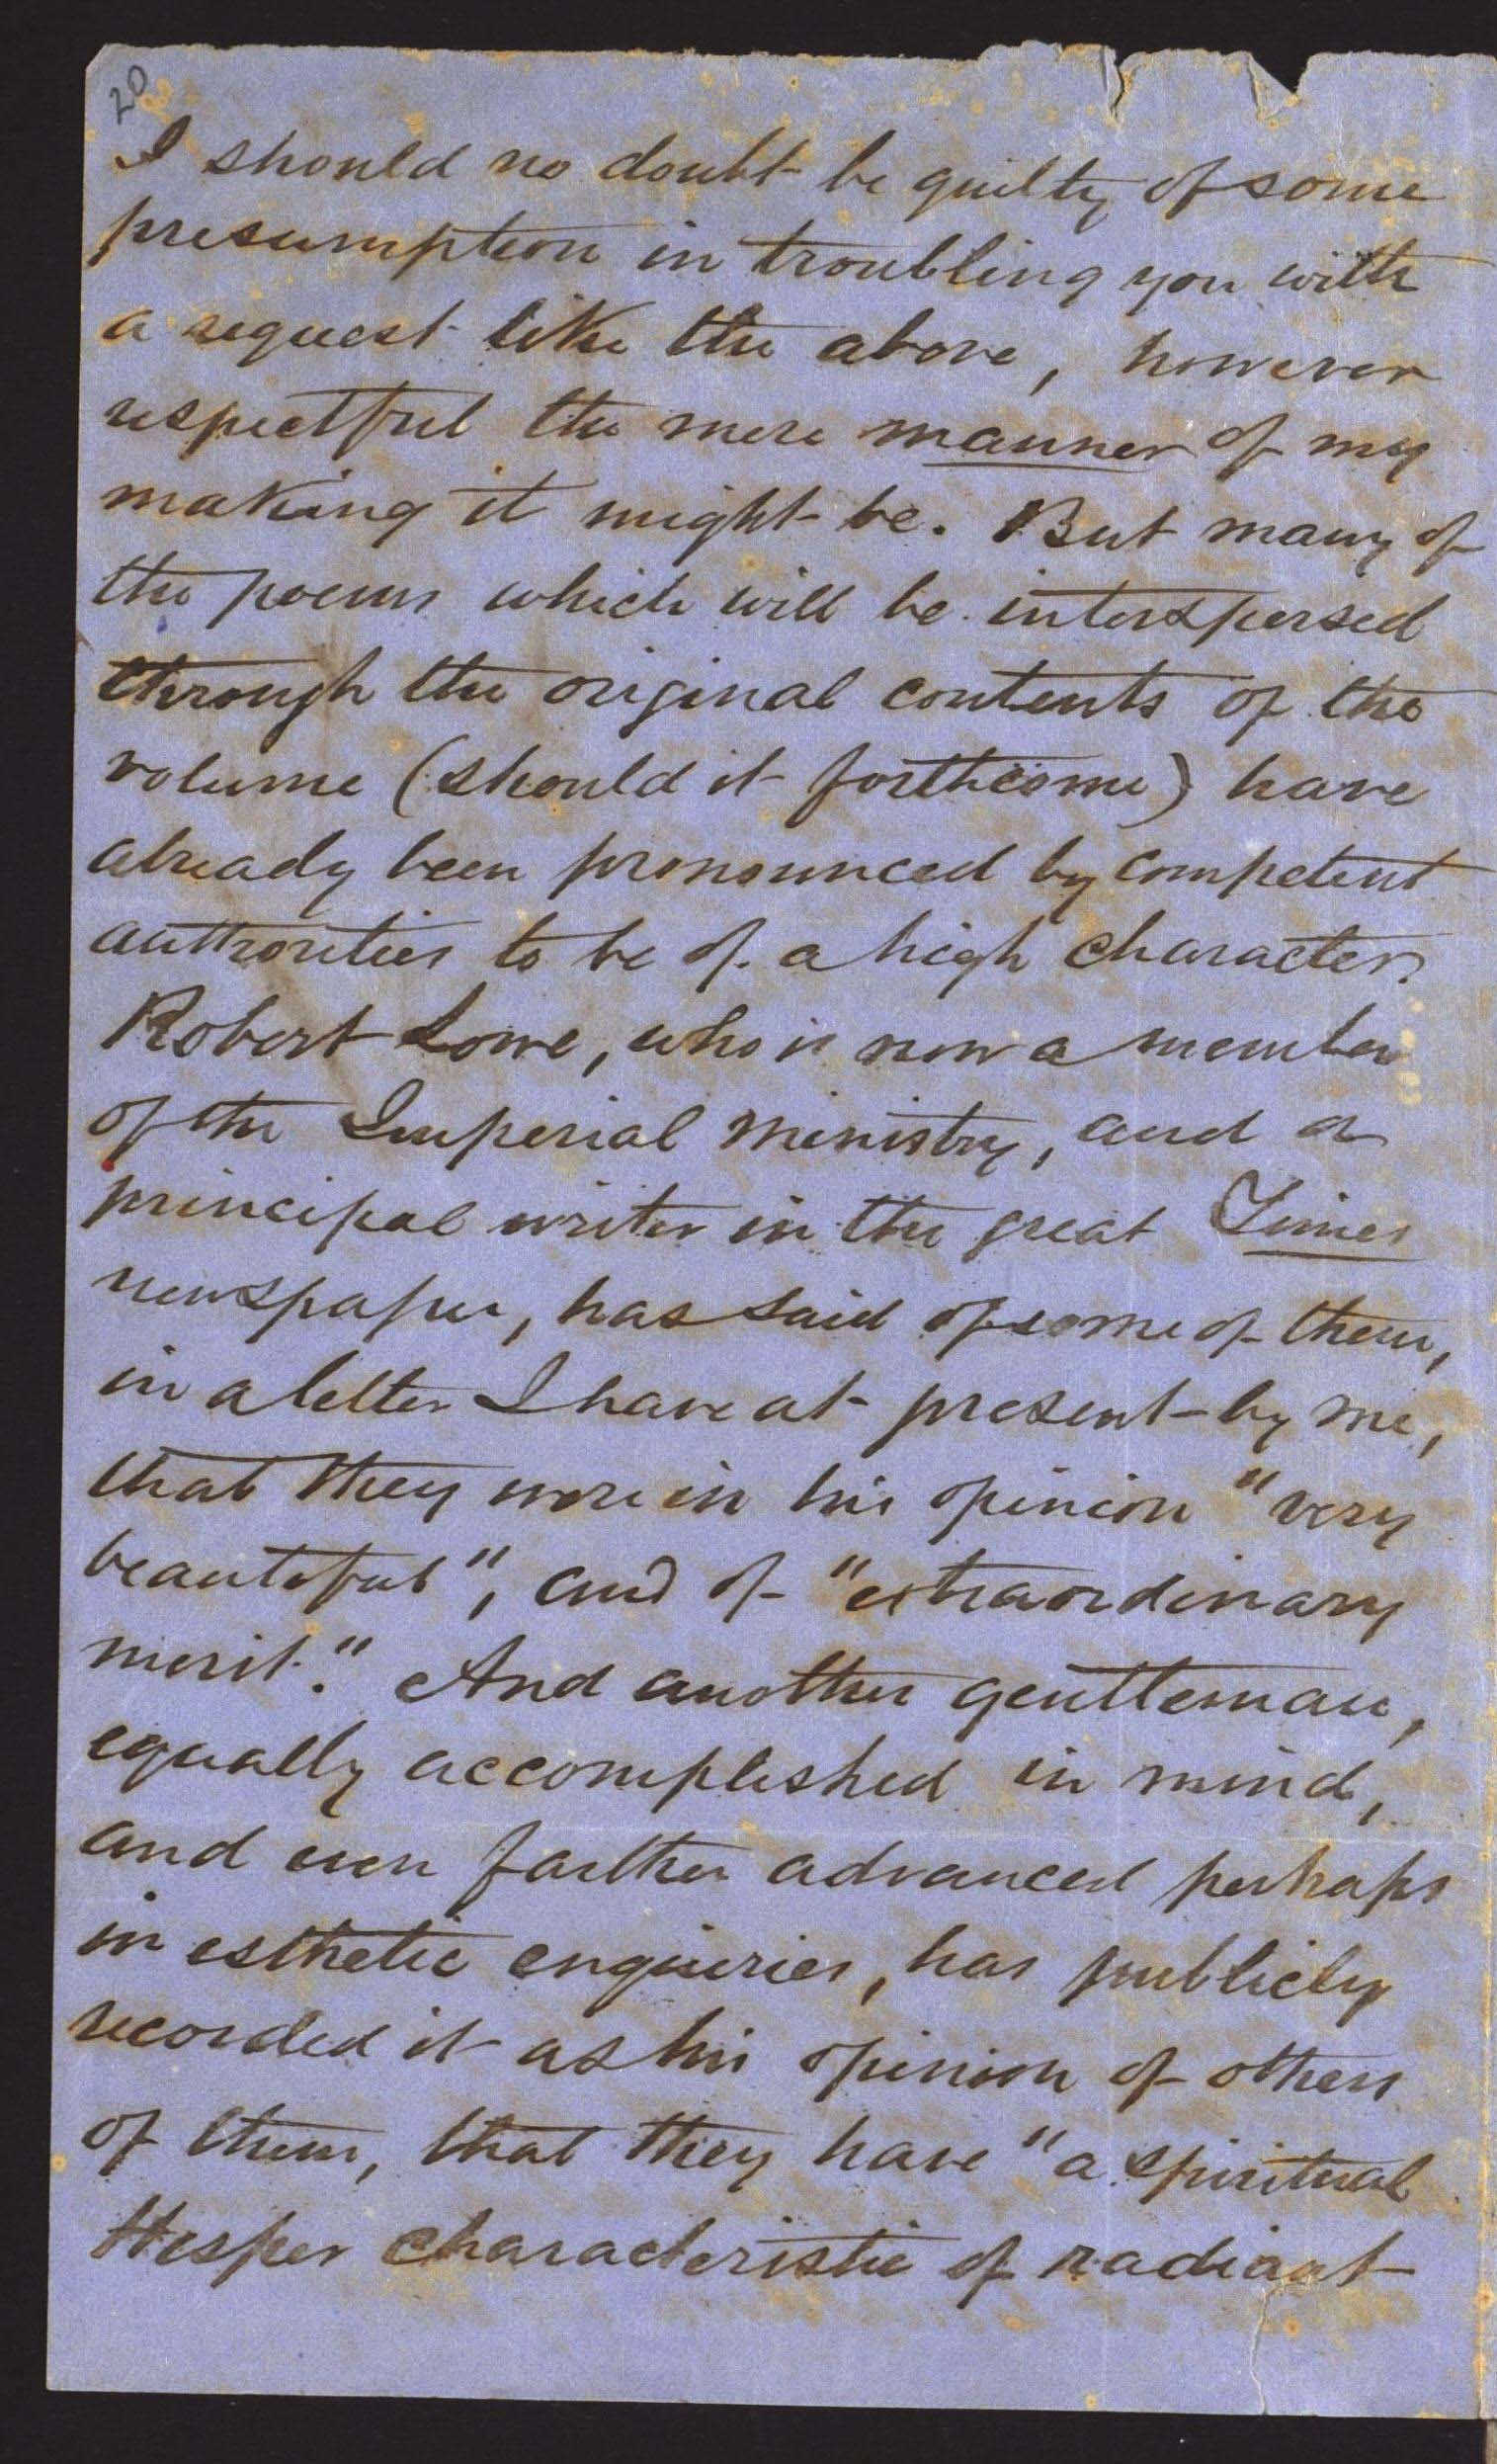 20
I should no doubt be guilty of some
presumption in troubling you with
a request like the above, however
respectful the mere manner of my
making it might be. But many of
the poems which will be interspersed
through the original contents of the
volume (should it forthcome) have
already been pronounced by competent
authorities to be of a high character.
Robert Lowe, who is now a member
of the Imperial ministry, and a
principal writer in the great Times
newspaper, has said of some of them,
in a letter I have at present by me,
that they were in his opinion "very
beautiful", and of "extraordinary
merit." And another gentleman,
equally accomplished in mind,
and even farther advanced perhaps
in esthetic enquiries, has publicly
recorded it as his opinion of others
of them, that they have "a spiritual
Hesper characteristic of radiant